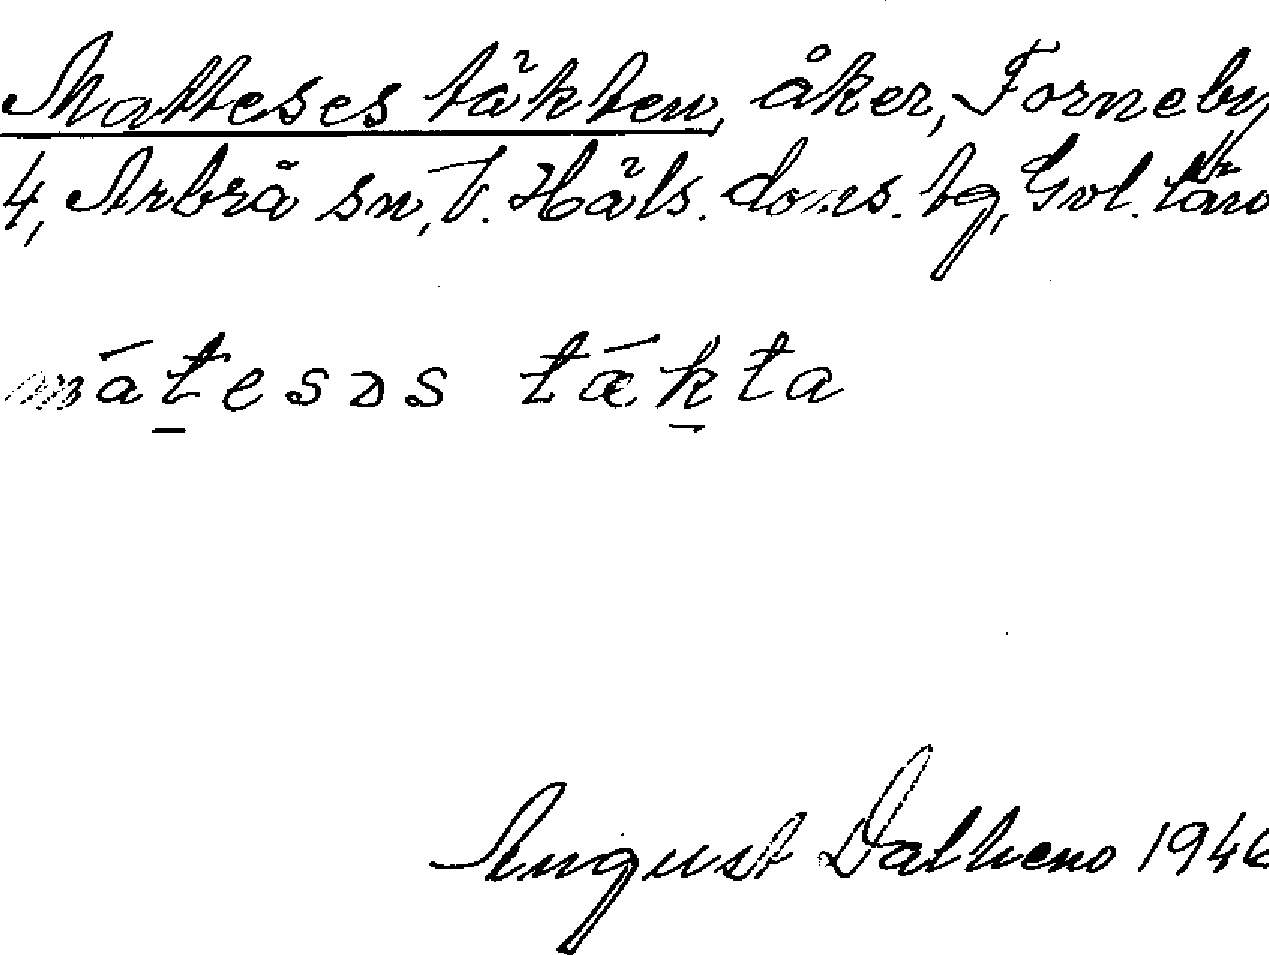 Matteses täkten, åker, Forneby
4, Arbrå sn, V. Häls. doms. tg, Gvl. län
mát̠esəs tǽk̠ta
August Dalheno 1946